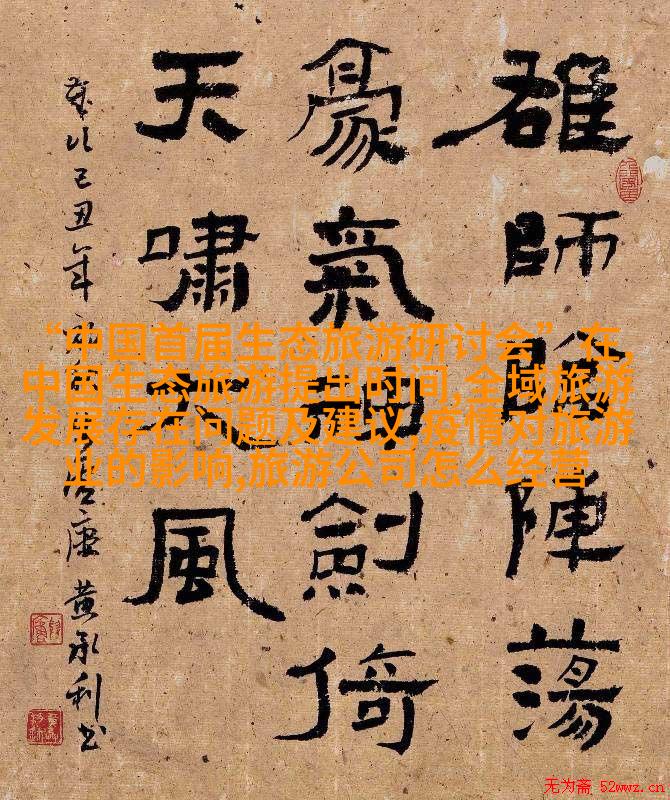 雄師陣蕩
豪氣劍倚
天嘯風
歲次己丑年
黄永利书
“中国首届生态旅游研讨会”在,
中国生态旅游提出时间,全域旅游
发展存在问题及建议,疫情对旅游
业的影响,旅游公司怎么经营
无为斋 52wwz.cn